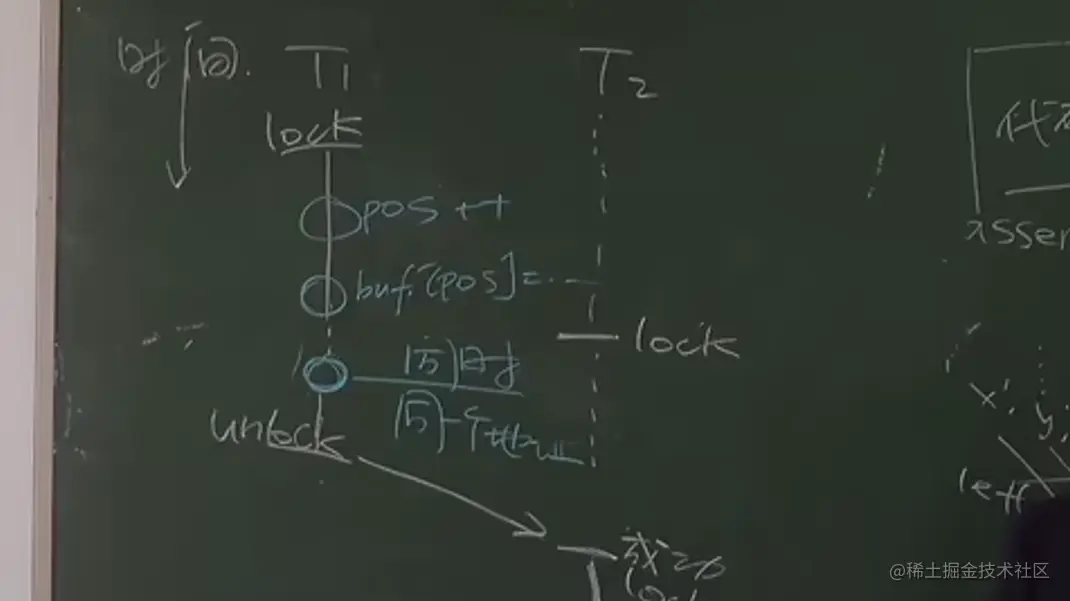 时间.
T1
T2
lock
pos ++
buf.[pos]=...
lock
同时
同一个
unlock
成功
loc
代
asser
x', y,
left
@稀土掘金技术社区